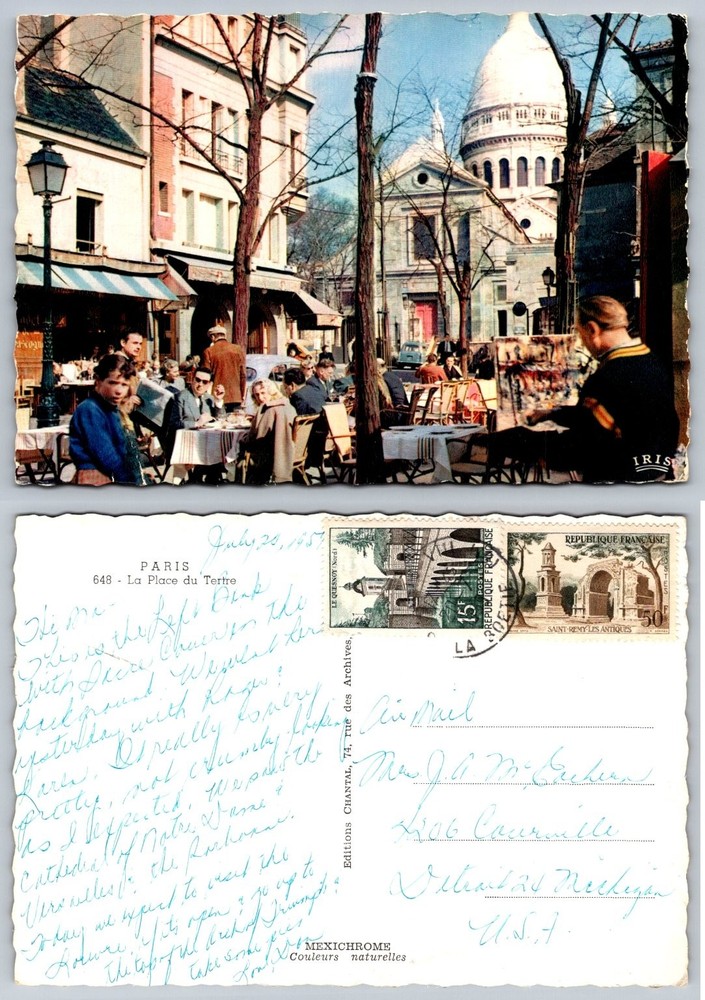 IRIS
PARIS
648 - La Place du Tertre
July 20, 195
Hi Ma -
This is the Left Bank
with Sacre Couer in the
background. We went here
yesterday with Roger &
Paris. It really is very
pretty, not crumby looking
as I expected. We saw the
Cathedral of Notre Dame &
Versailles & the Sorbonne.
Today we expect to visit the
Louvre, if its open & go up to
the top of the Arch of Triumph &
take some pics
Love,
LE QUESNOY (Nord)
15F
POSTES
RÉPUBLIQUE FRANÇAISE
REPUBLIQUE FRANÇAISE
POSTES
50F
SAINT-REMY LES ANTIQUES
LA
Editions CHANTAL, 74, rue des Archives,
Air Mail
Mrs. J. A. McEachern
Courville
Detroit 24 Michigan
U.S.A.
MEXICHROME
Couleurs naturelles